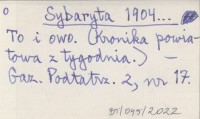 o
Sybaryta 1904...
To i owo. (Kronika powia-
towa z tygodnia.) —
Gaz. Podtatrz. 2, nr 17.
95/045/2022